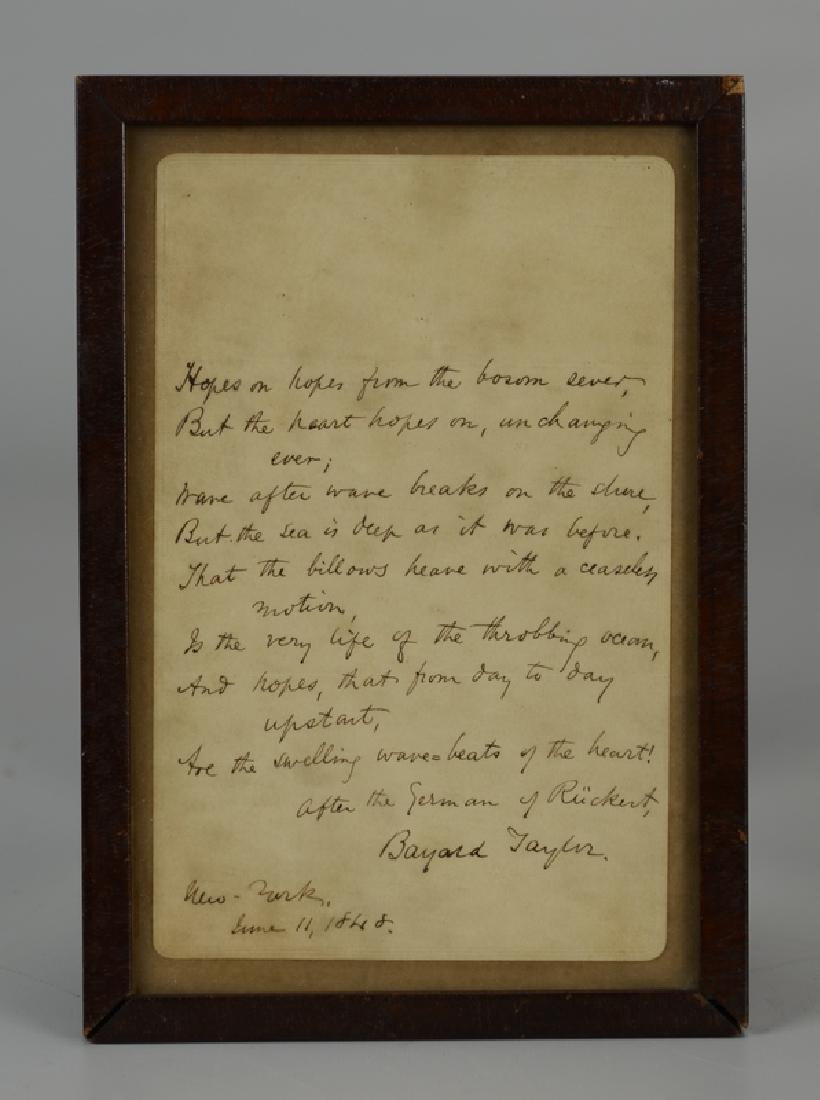 Hopes on hopes from the bosom sever,
But the heart hopes on, unchanging
ever;
Wave after wave breaks on the shore,
But the sea is deep as it was before.
That the billows heave with a ceaseless
motion,
Is the very life of the throbbing ocean,
And hopes, that from day to day
upstart,
Are the swelling wave-beats of the heart!
After the German of Rückert,
Bayard Taylor.
New-York,
June 11, 1848.